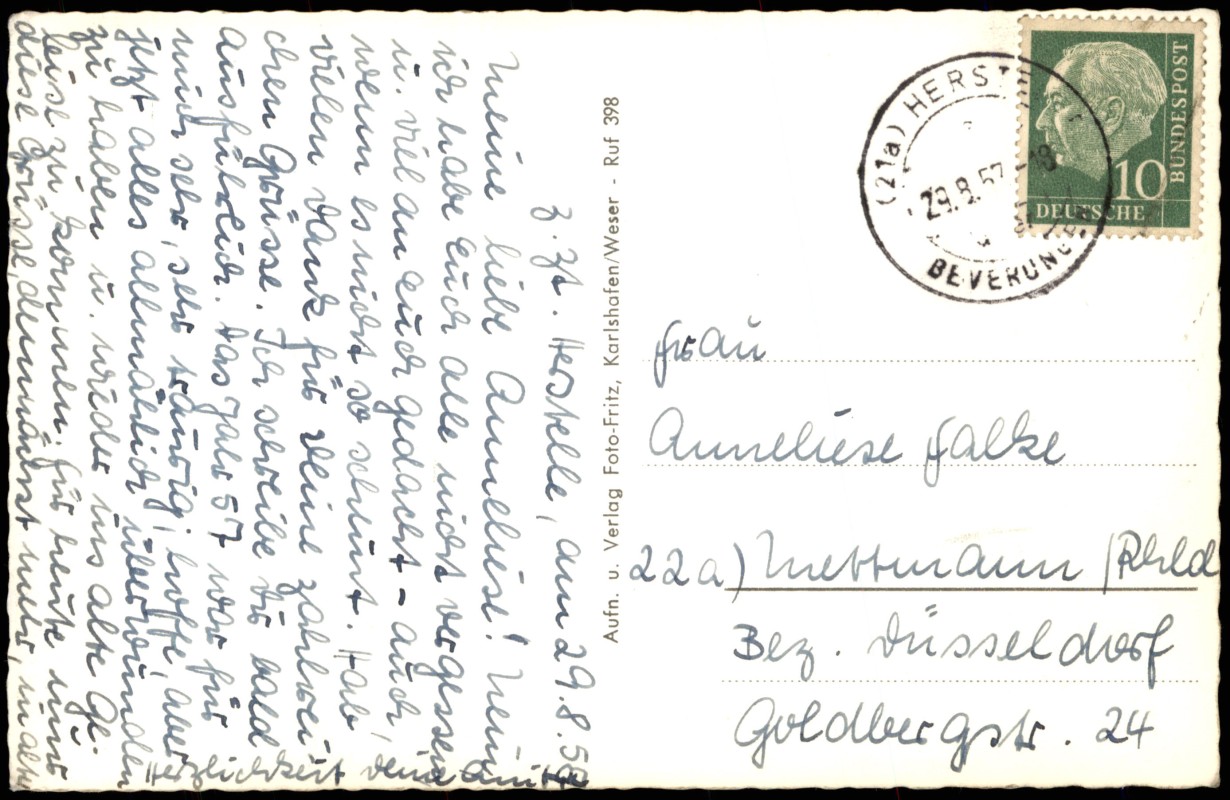 z. Zt. Herstelle, am 29.8.57
Meine liebe Anneliese! Nein,
ich habe Euch alle nicht vergessen
u. viel an Euch gedacht - auch,
wenn es nicht so scheint. Hab'
vielen Dank für Deine zahlrei
chen Grüsse. Ich schreibe Dir bald
ausführlich. Das Jahr 57 war für
mich sehr, sehr traurig, hoffe, aber
jetzt alles allmählich überwunden
zu haben u. wieder ins alte Ge-
leise zu kommen. Für heute nur
diese Grüsse, demnächst mehr, in alter
Herzlichkeit Deine Anita
Aufn. u. Verlag Foto-Fritz, Karlshafen/Weser - Ruf 398
(21a) HERST
29.8.57-18
BEVERUNG
10
DEUTSCHE
BUNDESPOST
Frau
Anneliese Falke
22a) Mettmann /Rhld
Bez. Düsseldorf
Goldbergstr. 24